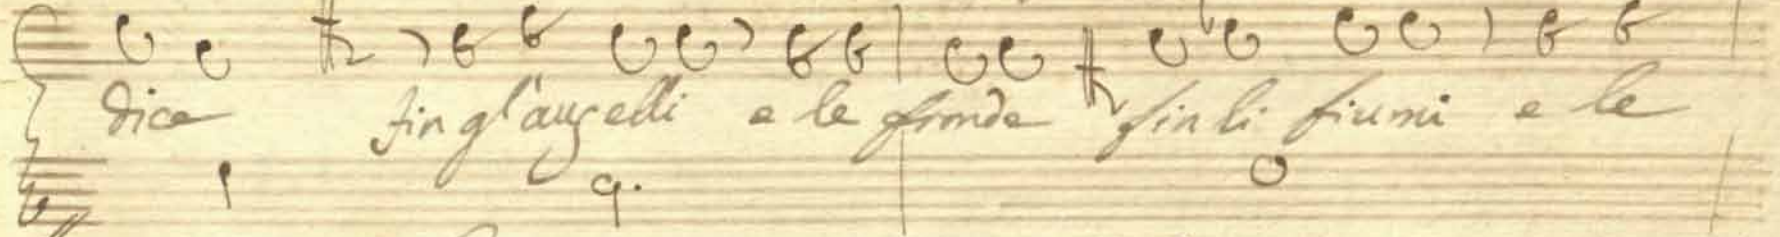 dice fin gl'augelli e le fronde fin li fiumi e le